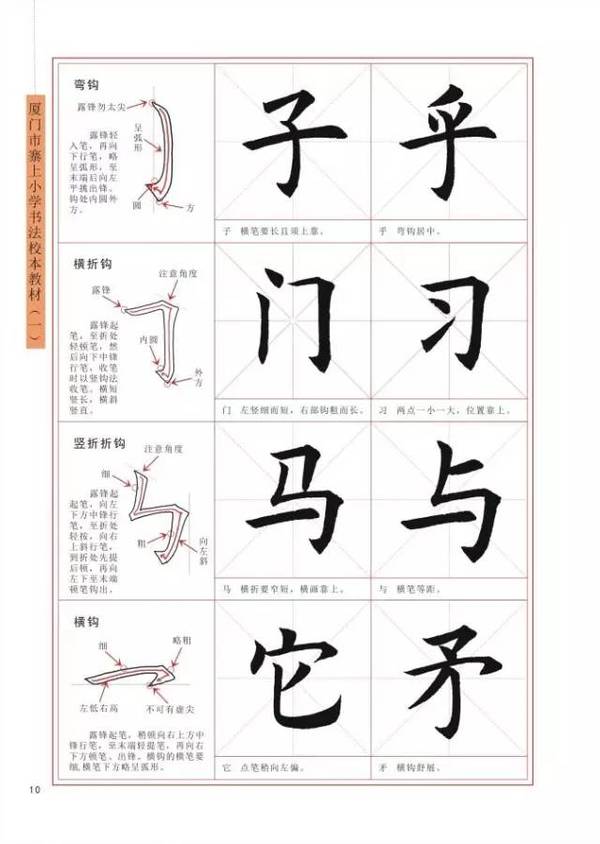 厦门市寨上小学书法校本教材（一）
弯钩
露锋勿太尖
呈弧形
露锋轻
入笔，再向
下行笔，略
呈弧形，至
末端后向左
平挑出锋。
钩处内圆外
方。
圆
方
子
乎
子 横笔要长且须上靠。
乎 弯钩居中。
横折钩
注意角度
露锋
内圆
外方
露锋起
笔，至折处
轻顿笔，然
后向下中锋
行笔，收笔
时以竖钩法
收笔。横短
竖长，横斜
竖直。
门
习
门 左竖细而短，右部钩粗而长。
习 两点一小一大，位置靠上。
竖折折钩
注意角度
细
粗
向左斜
露锋起
起笔，向左
下方中锋行
笔，至折处
轻按，向右
上斜行笔，
到折处先提
后顿，再向
左下至末端
顿笔钩出。
马
与
马 横折要窄短，横画靠上。
与 横笔等距。
横钩
略粗
细
左低右高
不可有虚尖
露锋起笔，稍顿向右上方中
锋行笔，至末端轻提笔，再向右
下方顿笔、出锋。横钩的横笔要
细，横笔下方略呈弧形。
它
矛
它 点笔稍向左偏。
矛 横钩舒展。
10